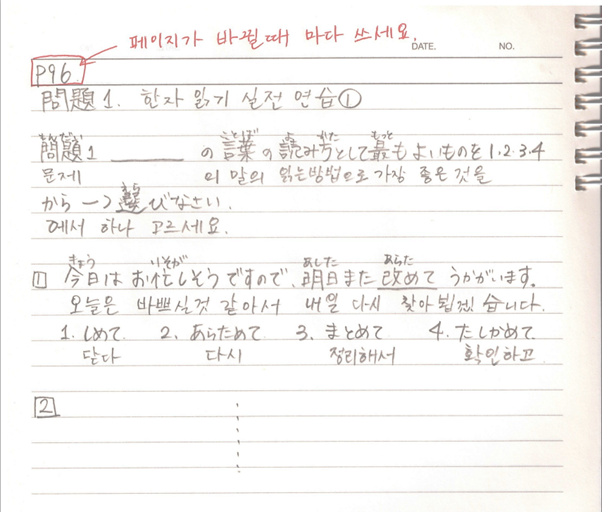 페이지가 바뀔때 마다 쓰세요.
DATE. NO.
P96
問題 1. 한자 읽기 실전 연습①
もんだい ことば よ かた もっと
問題1 ________ の言葉の読み方として最もよいものを 1.2.3.4
문제 의 말의 읽는방법으로 가장 좋은 것을
えら
から 一つ 選びなさい.
에서 하나 고르세요.
きょう いそが あした あらた
1 今日は お忙しそうですので、明日また 改めて うかがいます。
오늘은 바쁘실것 같아서 내일 다시 찾아 뵙겠습니다.
1. しめて 2. あらためて 3. まとめて 4. たしかめて
닫다 다시 정리해서 확인하고
2